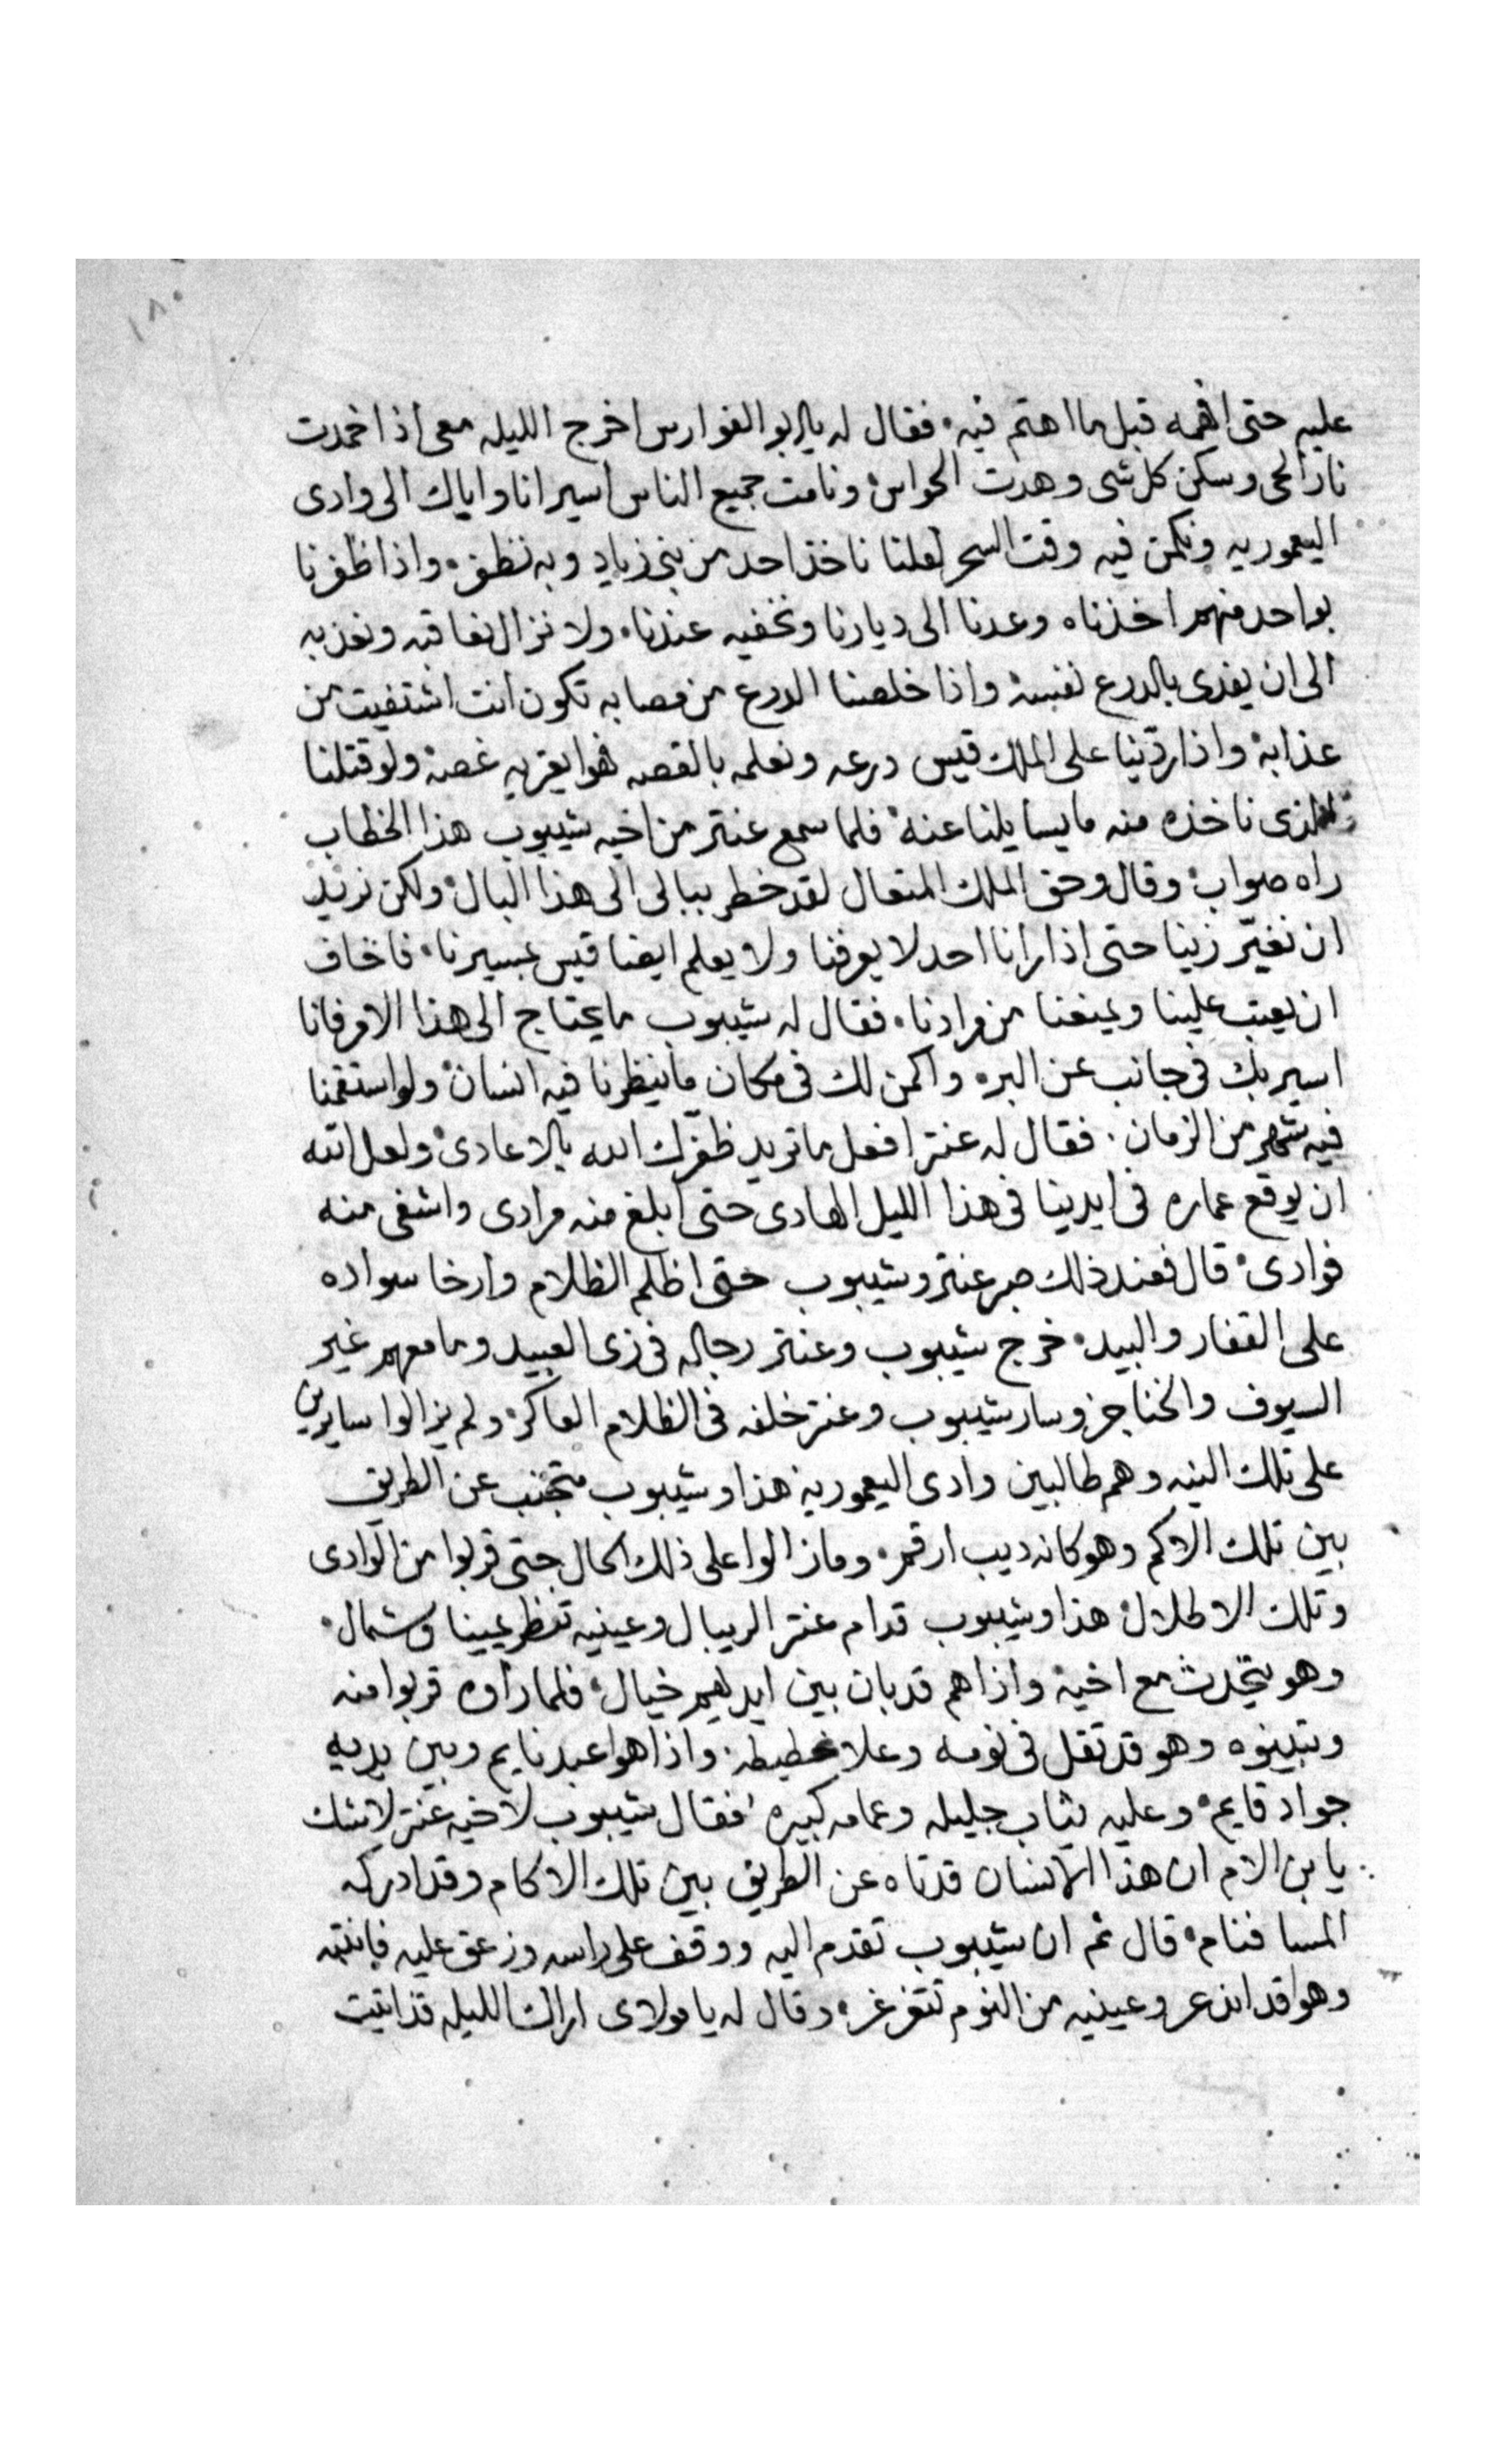 ١٨٠
عليه حتى افهمه قبل ما اهتم فيه فقال له يا ابو الفوارس اخرج الليله معى اذا خمدت
نار الحى وسكن كل شى وهدت الحواس ونامت جميع الناس اسير انا واياك الى وادى
اليعموريه ونكمن فيه وقت السحر لعلنا ناخذ احد من بنى زياد وبه نظفر واذا ظفرنا
بواحد منهم اخذناه وعدنا الى ديارنا ونخفيه عندنا ولا نزال نعاقبه ونعذبه
الى ان يفدى بالدرع نفسه واذا خلصنا الدرع من مصابه تكون انت اشتفيت من
عذابه واذا ردينا على الملك قيس درعه ونعلمه بالقصه فهوا يعتريه غصه ولو قتلنا
الذى ناخذه منه ما يسايلنا عنه فلما سمع عنتر من اخيه شيبوب هذا الخطاب
راه صواب وقال وحق الملك المتعال لقد خطر ببالى الى هذا البال ولكن نريد
ان نغيّر زينا حتى اذا رانا احد لا يعرفنا ولا يعلم ايضا قيس بمسيرنا فاخاف
ان يعتب علينا ويمنعنا من مرادنا فقال له شيبوب ما يحتاج الى هذا الامر فانا
اسير بك فى جانب عن البره واكمن لك فى مكان ما ينظرنا فيه انسان ولو استقمنا
فيه شهر من الزمان فقال له عنتر افعل ما تريد ظفرك الله بالاعادى ولعل الله
ان يوقع عماره فى ايدينا فى هذا الليل الهادى حتى ابلغ منه مرادى واشفى منه
فوادى قال فعند ذلك صبر عنتر وشيبوب حتى اظلم الظلام وارخا سواده
على القفار والبيد خرج شيبوب وعنتر رجاله فى زى العبيد وما معهم غير
السيوف والخناجر وسار شيبوب وعنتر خلفه فى الظلام العاكر ولم يزالوا سايرين
على تلك النيه وهم طالبين وادى اليعموريه هذا وشيبوب متجنب عن الطريق
بين تلك الاكم وهو كانه ديب ارقم وما زالوا على ذلك الحال حتى قربوا من الوادى
وتلك الاطلال هذا وشيبوب قدام عنتر الريبال وعينيه تنظر يمينا وشمال
وهو يتحدث مع اخيه واذا هم قد بان بين ايديهم خيال فلما راوه قربوا منه
وتبينوه وهو قد تقل فى نومه وعلا غطيطه واذا هوا عبد نايم وبين يديه
جواد قايم وعليه ثياب جليله وعمامه كبيره فقال شيبوب لاخيه عنتر لا شك
يا بن الام ان هذا الانسان قد تاه عن الطريق بين تلك الاكام وقد ادركه
المسا فنام قال ثم ان شيبوب تقدم اليه ووقف على راسه وزعق عليه فانتبه
وهوا قد اندعر وعينيه من النوم تتغرغر وقال له يا مولاى اراك الليله قد اتيت